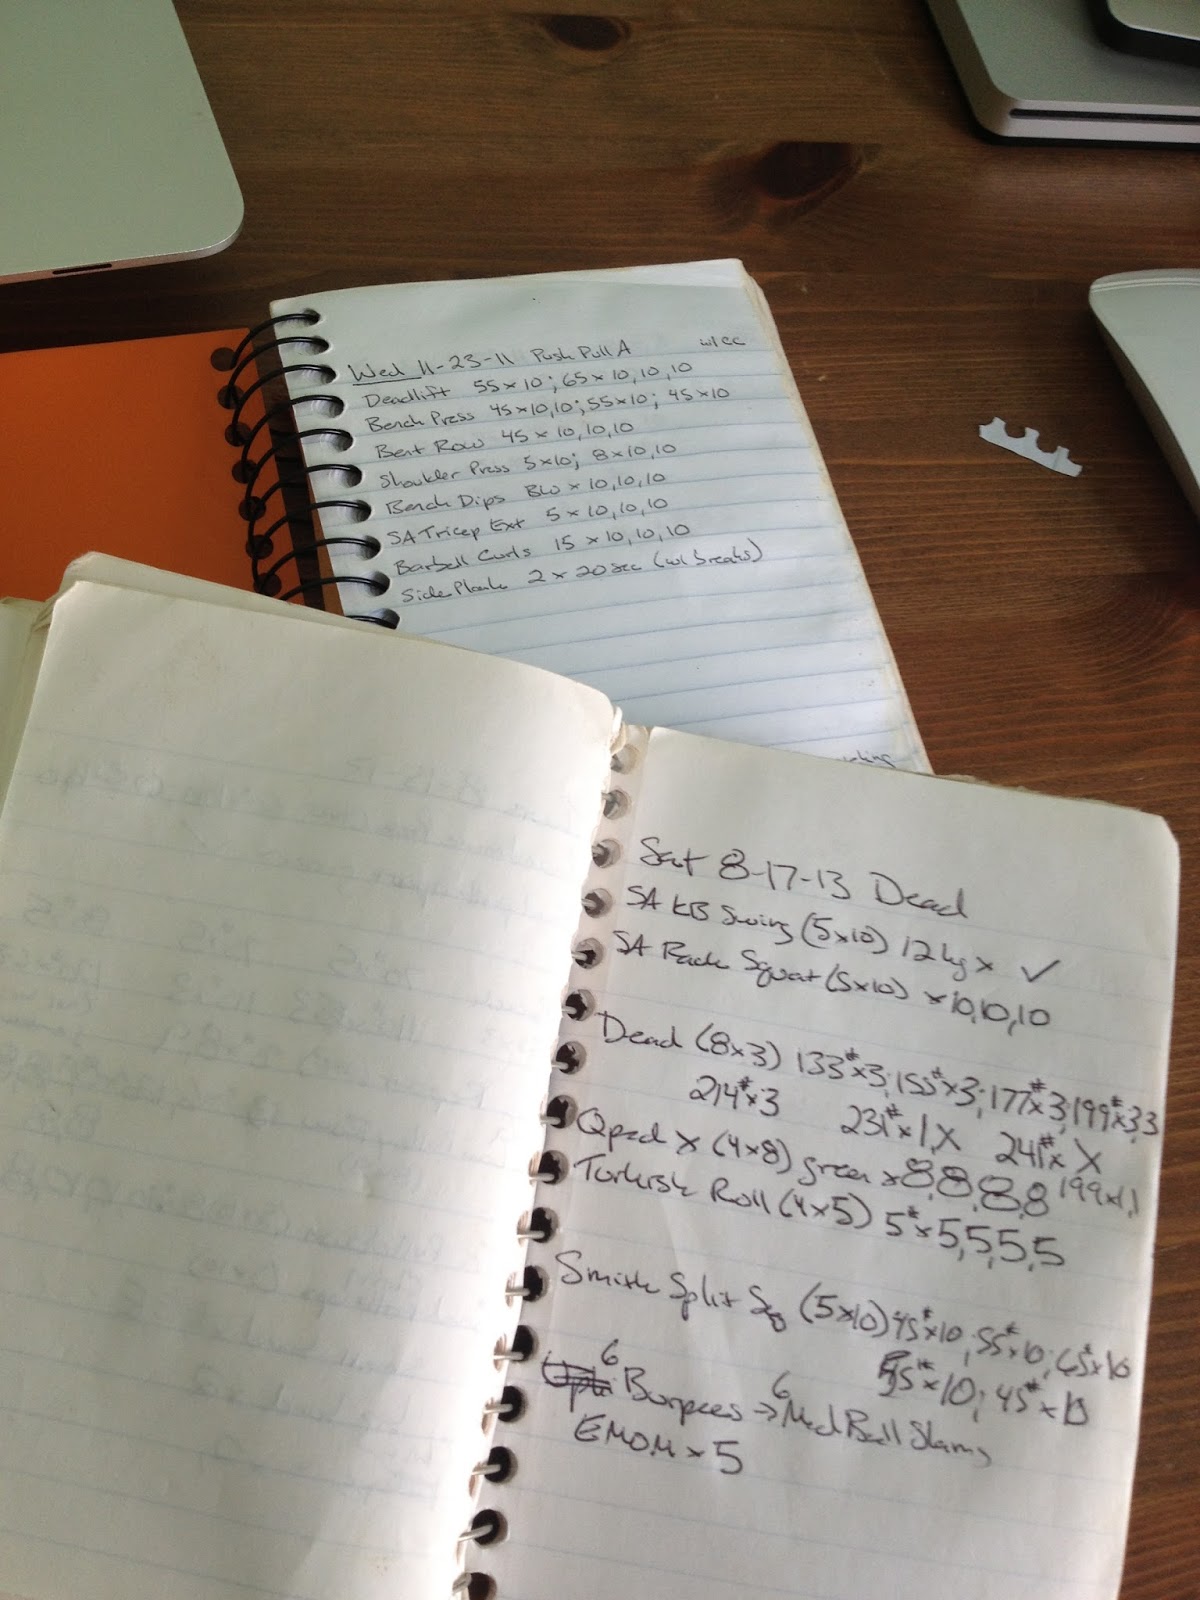 Wed 11-23-11 Push Pull A w/ CC
Deadlift 55 x 10; 65 x 10, 10, 10
Bench Press 45 x 10, 10; 55 x 10; 45 x 10
Bent Row 45 x 10, 10, 10
Shoulder Press 5 x 10; 8 x 10, 10
Bench Dips BW x 10, 10, 10
SA Tricep Ext 5 x 10, 10, 10
Barbell Curls 15 x 10, 10, 10
Side Plank 2 x 20 sec (w/ breaks)
Sat 8-17-13 Dead
SA KB Swing (5x10) 12 kg x ✓
SA Rack Squat (5x10) x 10, 10, 10
Dead (8x3) 133# x 3; 155# x 3; 177# x 3; 199# x 3, 3
214# x 3 231# x 1, X 241# x X
Qped X (4x8) green x 8, 8, 8, 8 199 x 1, 1
Turkish Roll (4x5) 5# x 5, 5, 5, 5
Smith Split Sq (5x10) 45# x 10; 55# x 10; 65# x 10
55# x 10; 45# x 10
6 Burpees → 6 Med Ball Slams
EMOM x 5